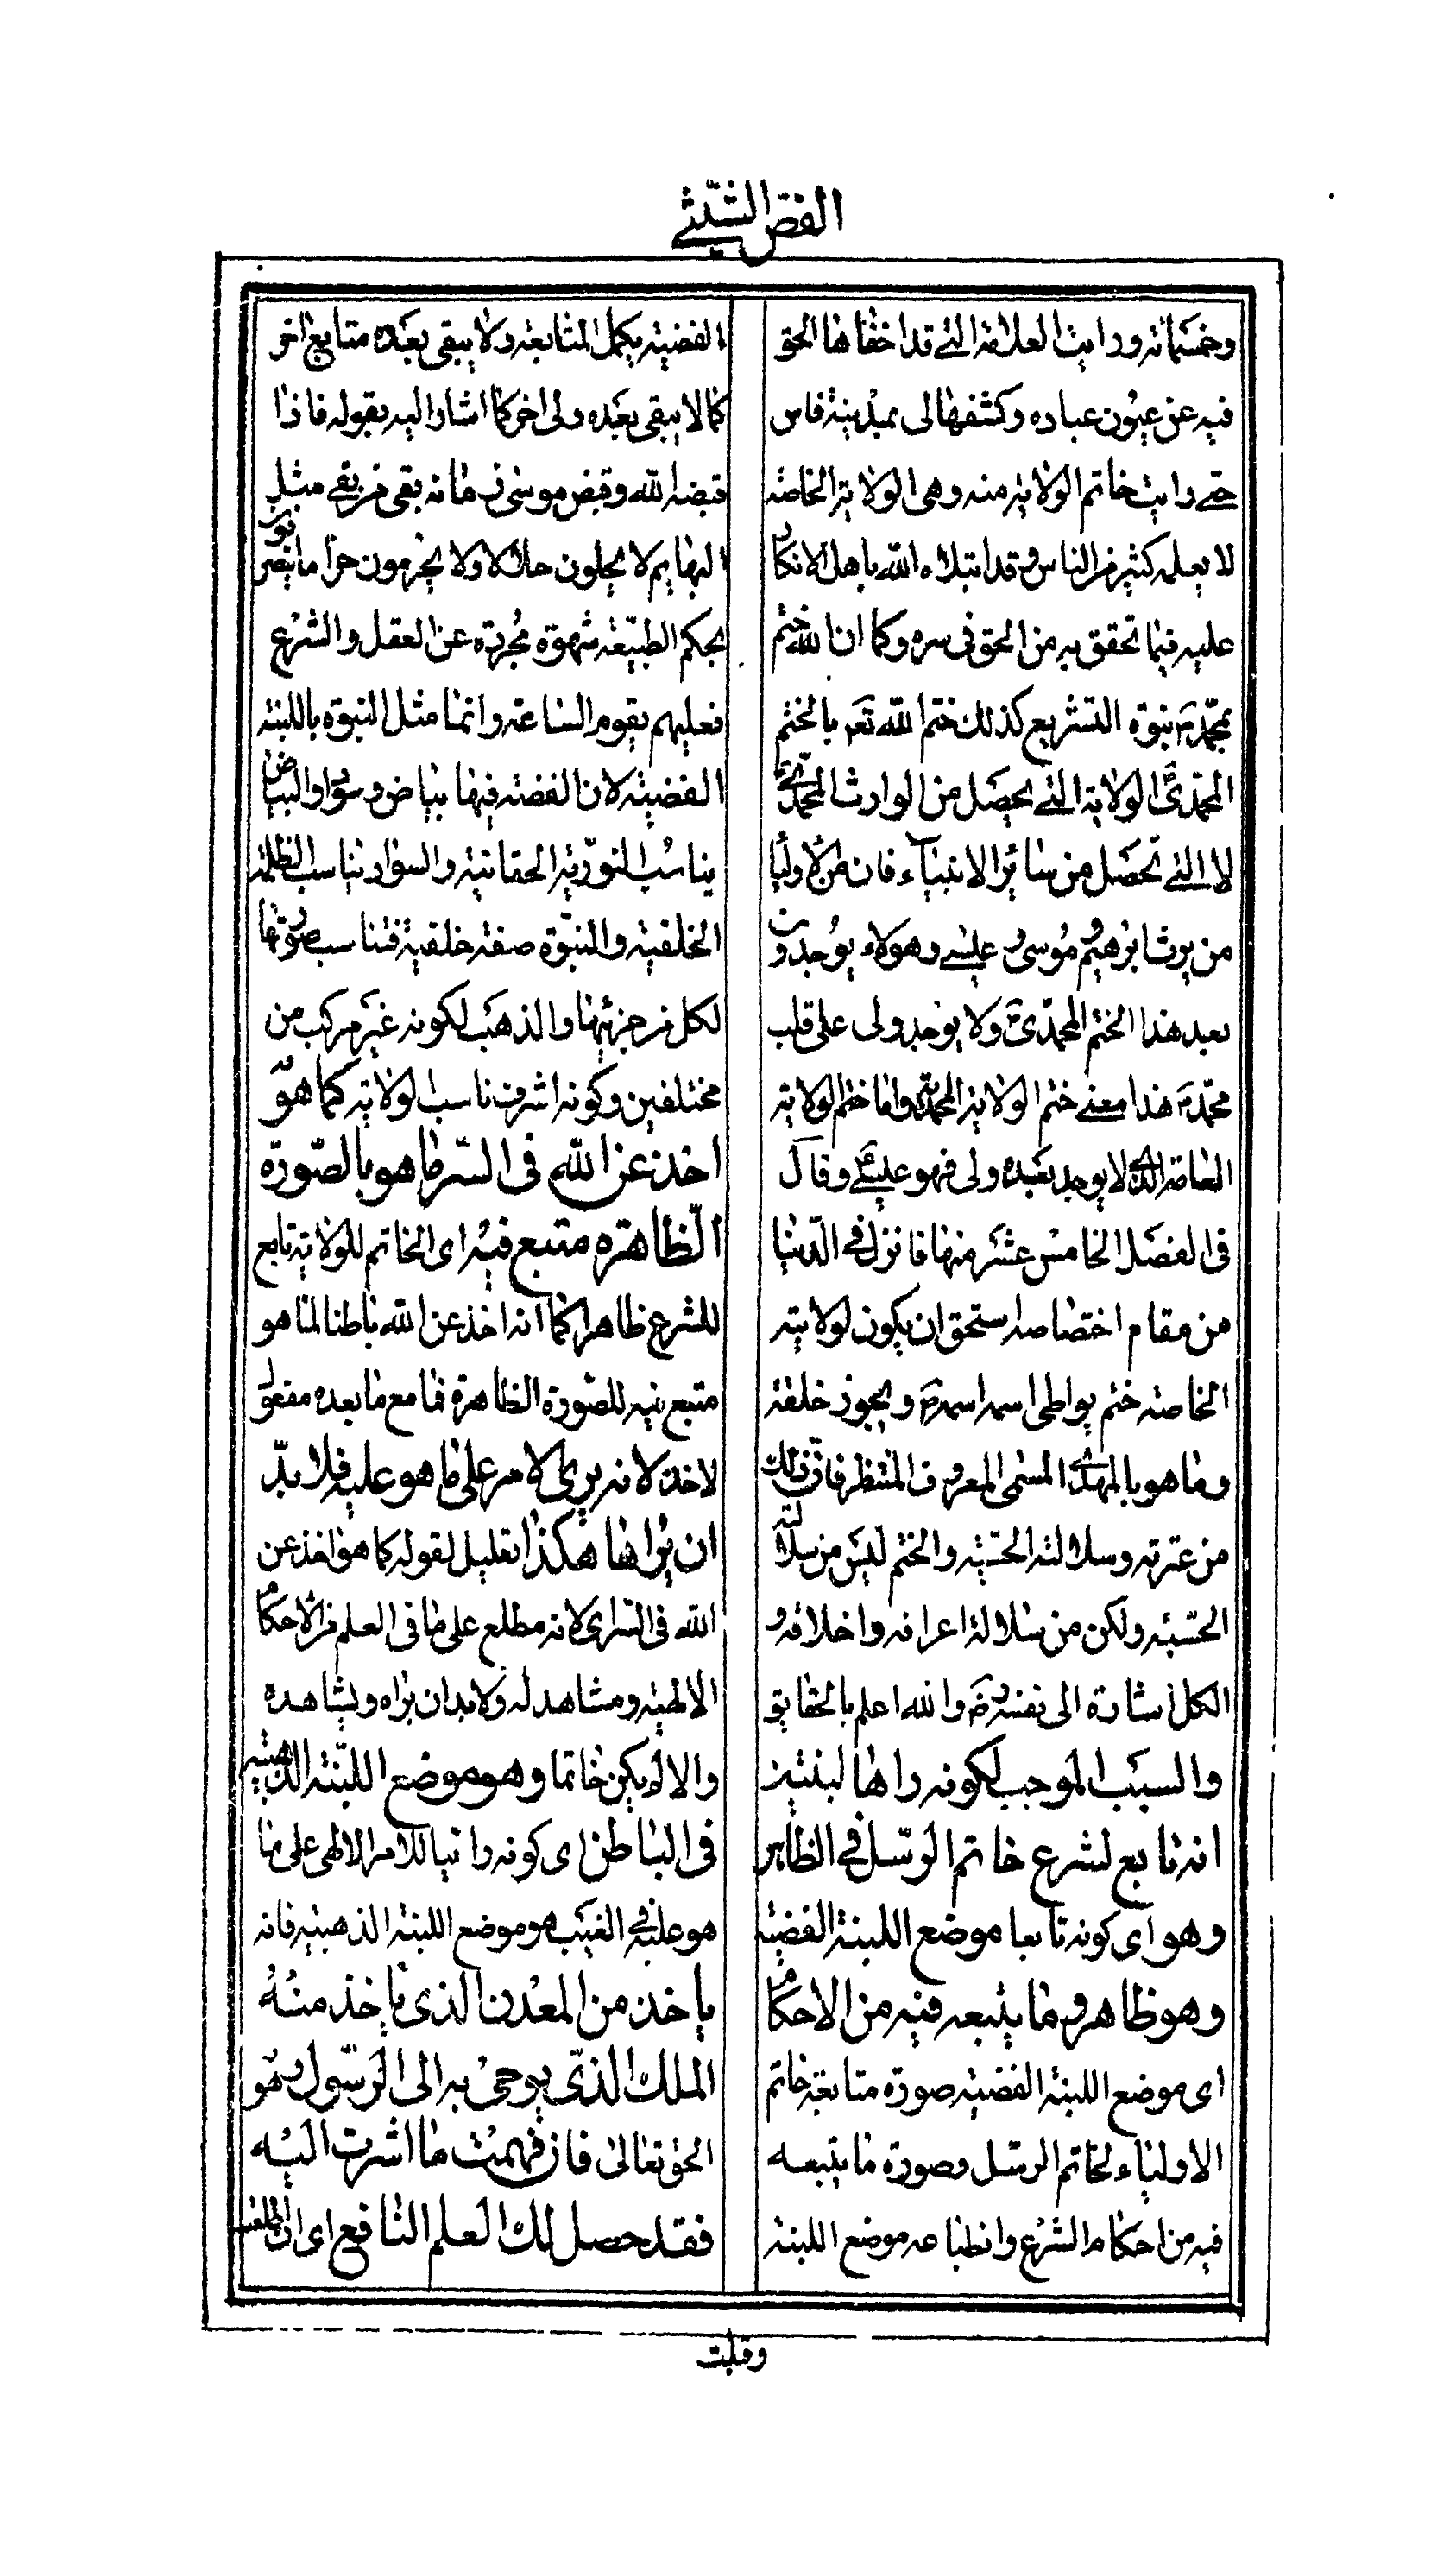 الفص الشيثي
وخمسمائه ورايت العلامة التي قد اخفاها الحق
فيه عن عيون عباده وكشفها لي بمدينة فاس
حتى رايت خاتم الولاية منه وهي الولاية الخاصة
لا يعلمه كثير من الناس وقد ابتلاه الله باهل الانكار
عليه فيما تحقق به من الحق في سره وكما ان الله ختم
بمحمد ص نبوة التشريع كذلك ختم الله تعم بالختم
المحمدي الولاية التي يحصل من الوارث المحمدي
لا التي تحصل من سائر الانبياء فان من الاوليا
من يرث ابرهيم وموسى وعيسى وهولاء يوجدون
بعد هذا الختم المحمدي ولا يوجد ولي على قلب
محمد ص هذا معنى ختم الولاية المحمدية واما ختم الولاية
العامة الذي لا يوجد بعده ولي فهو عيسى ع وقال
في الفصل الخامس عشر منها فانزل في الدنيا
من مقام اختصاصه استحق ان يكون لولايته
الخاصة ختم يواطي اسمه اسمه ص ويحوز خلقه
وما هو بالمهدي المسمى المعروف المنتظر فان ذلك
من عترته وسلالته الحسية والختم ليس من سلالته
الحسية ولكن من سلالة اعراقه واخلاقه و
الكل اشارة الى نفسه رض والله اعلم بالحقايق
والسبب الموجب لكونه راها لبنتين
انه تابع لشرع خاتم الرسل في الظاهر
وهو اي كونه تابعا موضع اللبنة الفضية
وهو ظاهره وما يتبعه فيه من الاحكام
اي موضع اللبنة الفضية صورة متابعة خاتم
الاولياء لخاتم الرسل وصورة ما يتبعه
فيه من احكام الشرع وانطباعه موضع اللبنة
الفضية يكمل المتابعة ولا يبقى بعده متابع اخر
كما لا يبقى بعده ولي اخر كما اشار اليه بقوله فاذا
قبضه الله وقبض مومنى زمانه بقى من بقى مثل
البهايم لا يحلون حلالا ولا يحرمون حراما يتصرفون
بحكم الطبيعة شهوة مجردة عن العقل والشرع
فعليهم يقوم الساعة وانما مثل النبوة باللبنة
الفضية لان الفضة فيها بياض وسواد والبياض
يناسب النورية الحقانية والسواد يناسب الظلمة
الخلقية والنبوة صفة خلقية فتناسب صورتها
لكل من جزئيها والذهب لكونه غير مركب من
مختلفين وكونه اشرف ناسب الولاية كما هو
اخذ عن الله في السر ما هو بالصورة
الظاهره متبع فيه اي الخاتم للولاية تابع
للشرع ظاهرا كما انه اخذ عن الله باطنا لما هو
متبع فيه للصورة الظاهرة فما مع ما بعده مفعول
لاخذ لانه يرى الامر على ما هو عليه فلا بد
ان يراها هكذا تعليل لقوله كما هو اخذ عن
الله في السر اي لانه مطلع على ما في العلم من الاحكام
الالهية ومشاهد له ولا بد ان يراه ويشاهده
والا لم يكن خاتما وهو موضع اللبنة الذهبية
في الباطن اي كونه رائيا للامر الالهي على ما
هو عليه في الغيب هو موضع اللبنة الذهبية فانه
ياخذ من المعدن الذي ياخذ منه
الملك الذي يوحى به الى الرسول وهو
الحق تعالى فان فهمت ما اشرت اليه
فقد حصل لك العلم النافع اي ان اطلعت
وقلبت